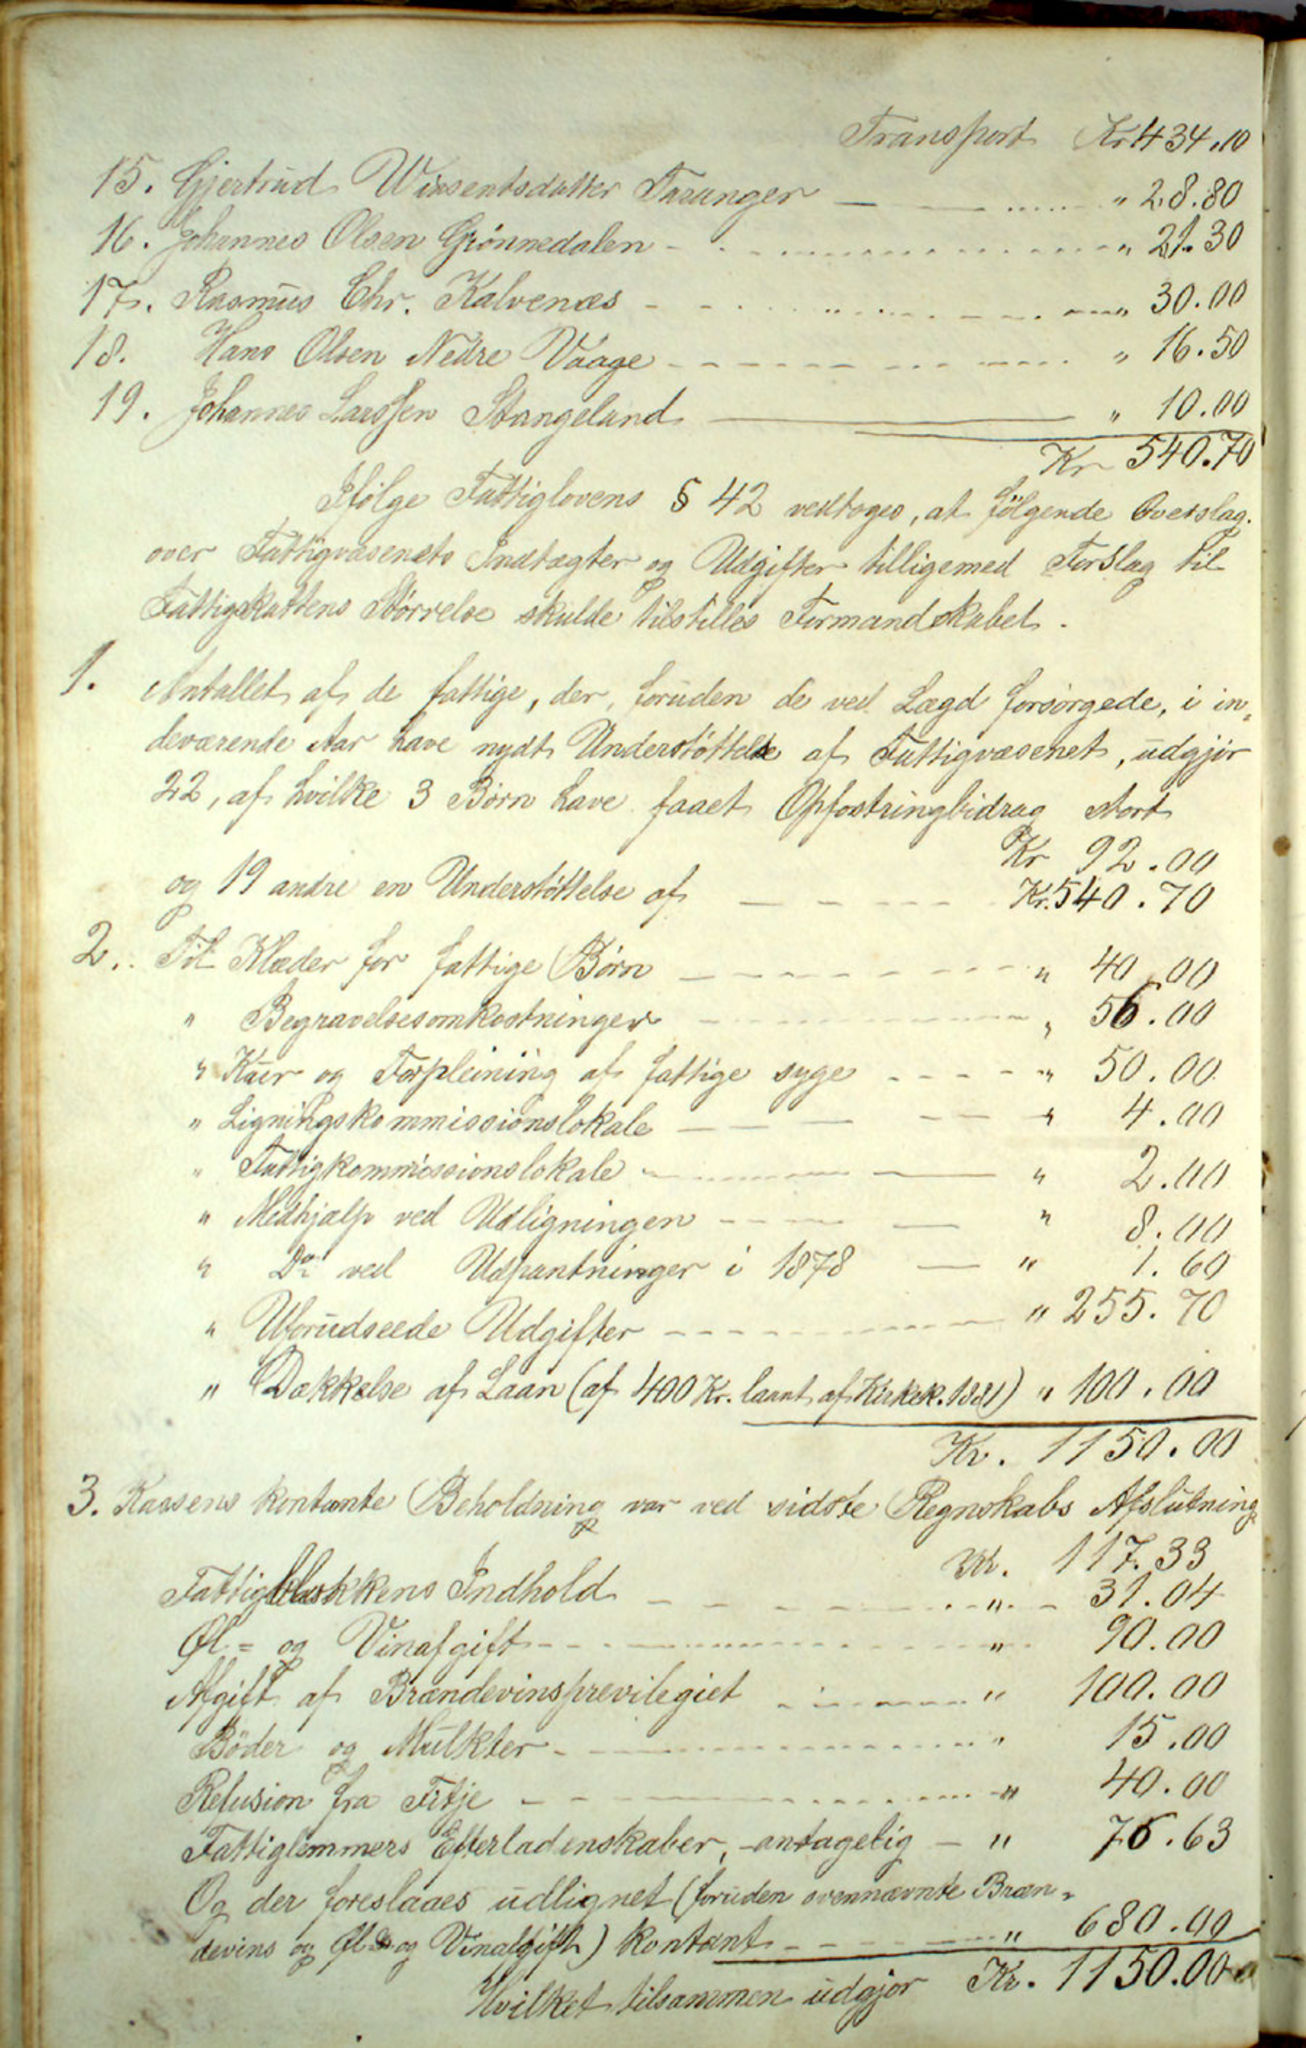 Transport Kr 434.10
15. Gjertrud Winsentsdatter Taranger — — ..... " 28.80
16. Johannes Olsen Grönnedalen - . ............ " 21.30
17. Rasmus Chr. Kalvenæs - - . ......... " 30.00
18. Hans Olsen Nedre Vaage - - - - - - - - " 16.50
19. Johannes Larssen Stangeland ———— " 10.00
Kr 540.70
Ifölge Fattiglovens § 42 vedtoges, at fölgende Overslag
over Fattigvæsenets Indtægter og Udgifter tilligemed Forslag til
Fattigskattens Störrelse skulde tilstilles Formandskabet.
1. Antallet af de fattige, der, foruden de ved Lægd forsörgede, i in-
deværende Aar have nydt Understöttelse af Fattigvæsenet, udgjör
22, af hvilke 3 Börn have faaet Opfostringbidrag stort
Kr 92.00
og 19 andre en Understöttelse af — - - - - Kr. 540.70
2. Til Klæder for fattige Börn — - - - - - - " 40.00
" Begravelsesomkostninger - - - - - - - - " 56.00
" Kur og Forpleining af fattige syge - - - - - " 50.00
" Ligningskommissionslokale — — — — — " 4.00
" Fattigkommissionslokale - - - - - — " 2.00
" Medhjælp ved Udligningen - - - - — " 8.00
" Do ved Udpantninger i 1878 — " 1.60
" Uforudseede Udgifter - - - - - - - - — " 255.70
" Dækkelse af Laan (af 400 Kr. laant af Kirkek. 1881) " 100.00
Kr. 1150.00
3. Kassens kontante Beholdning var ved sidste Regnskabs Afslutning
Kr. 117.33
Fattigblokkens Indhold — - - - - - - - " - 31.04
Öl- og Vinafgift - - - - - - - - - - " 90.00
Afgift af Brændevinsprevilegiet - - - - - - " 100.00
Böder og Mulkter - - - - - - - - - - " 15.00
Refusion fra Fitje - - - - - - - - - - " 40.00
Fattiglemmers Efterladenskaber, antagelig — " 76.63
Og der foreslaaes udlignet (foruden ovennævnte Bræn-
devins og Öl og Vinafgift) kontant - - - - - " 680.00
Hvilket tilsammen udgjör Kr. 1150.00